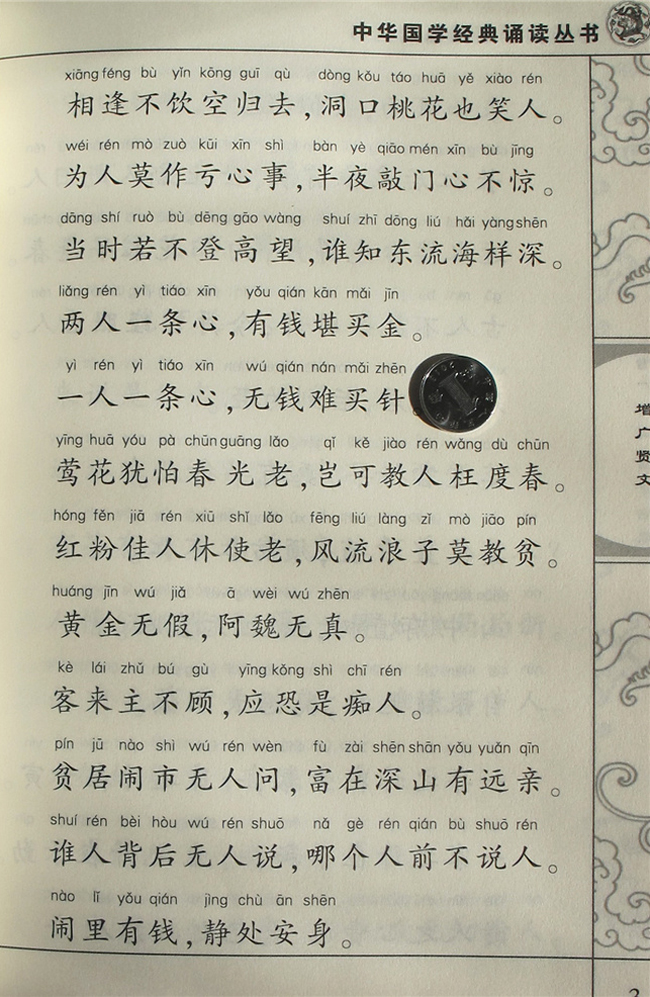 中华国学经典诵读丛书
xiāng féng bù yǐn kōng guī qù dòng kǒu táo huā yě xiào rén
相逢不饮空归去,洞口桃花也笑人。
wéi rén mò zuò kūi xīn shì bàn yè qiāo mén xīn bù jīng
为人莫作亏心事,半夜敲门心不惊。
dāng shí ruò bù dēng gāo wàng shuí zhī dōng liú hǎi yàng shēn
当时若不登高望,谁知东流海样深。
liǎng rén yì tiáo xīn yǒu qián kān mǎi jīn
两人一条心,有钱堪买金。
yì rén yì tiáo xīn wú qián nán mǎi zhēn
一人一条心,无钱难买针
yīng huā yóu pà chūn guāng lǎo qǐ kě jiào rén wǎng dù chūn
莺花犹怕春光老,岂可教人枉度春。
hóng fěn jiā rén xiū shǐ lǎo fēng liú làng zǐ mò jiāo pín
红粉佳人休使老,风流浪子莫教贫。
huáng jīn wú jiǎ ā wèi wú zhēn
黄金无假,阿魏无真。
kè lái zhǔ bú gù yīng kǒng shì chī rén
客来主不顾,应恐是痴人。
pín jū nào shì wú rén wèn fù zài shēn shān yǒu yuǎn qīn
贫居闹市无人问,富在深山有远亲。
shuí rén bèi hòu wú rén shuō nǎ gè rén qián bù shuō rén
谁人背后无人说,哪个人前不说人。
nào lǐ yǒu qián jìng chù ān shēn
闹里有钱,静处安身。
增广贤文